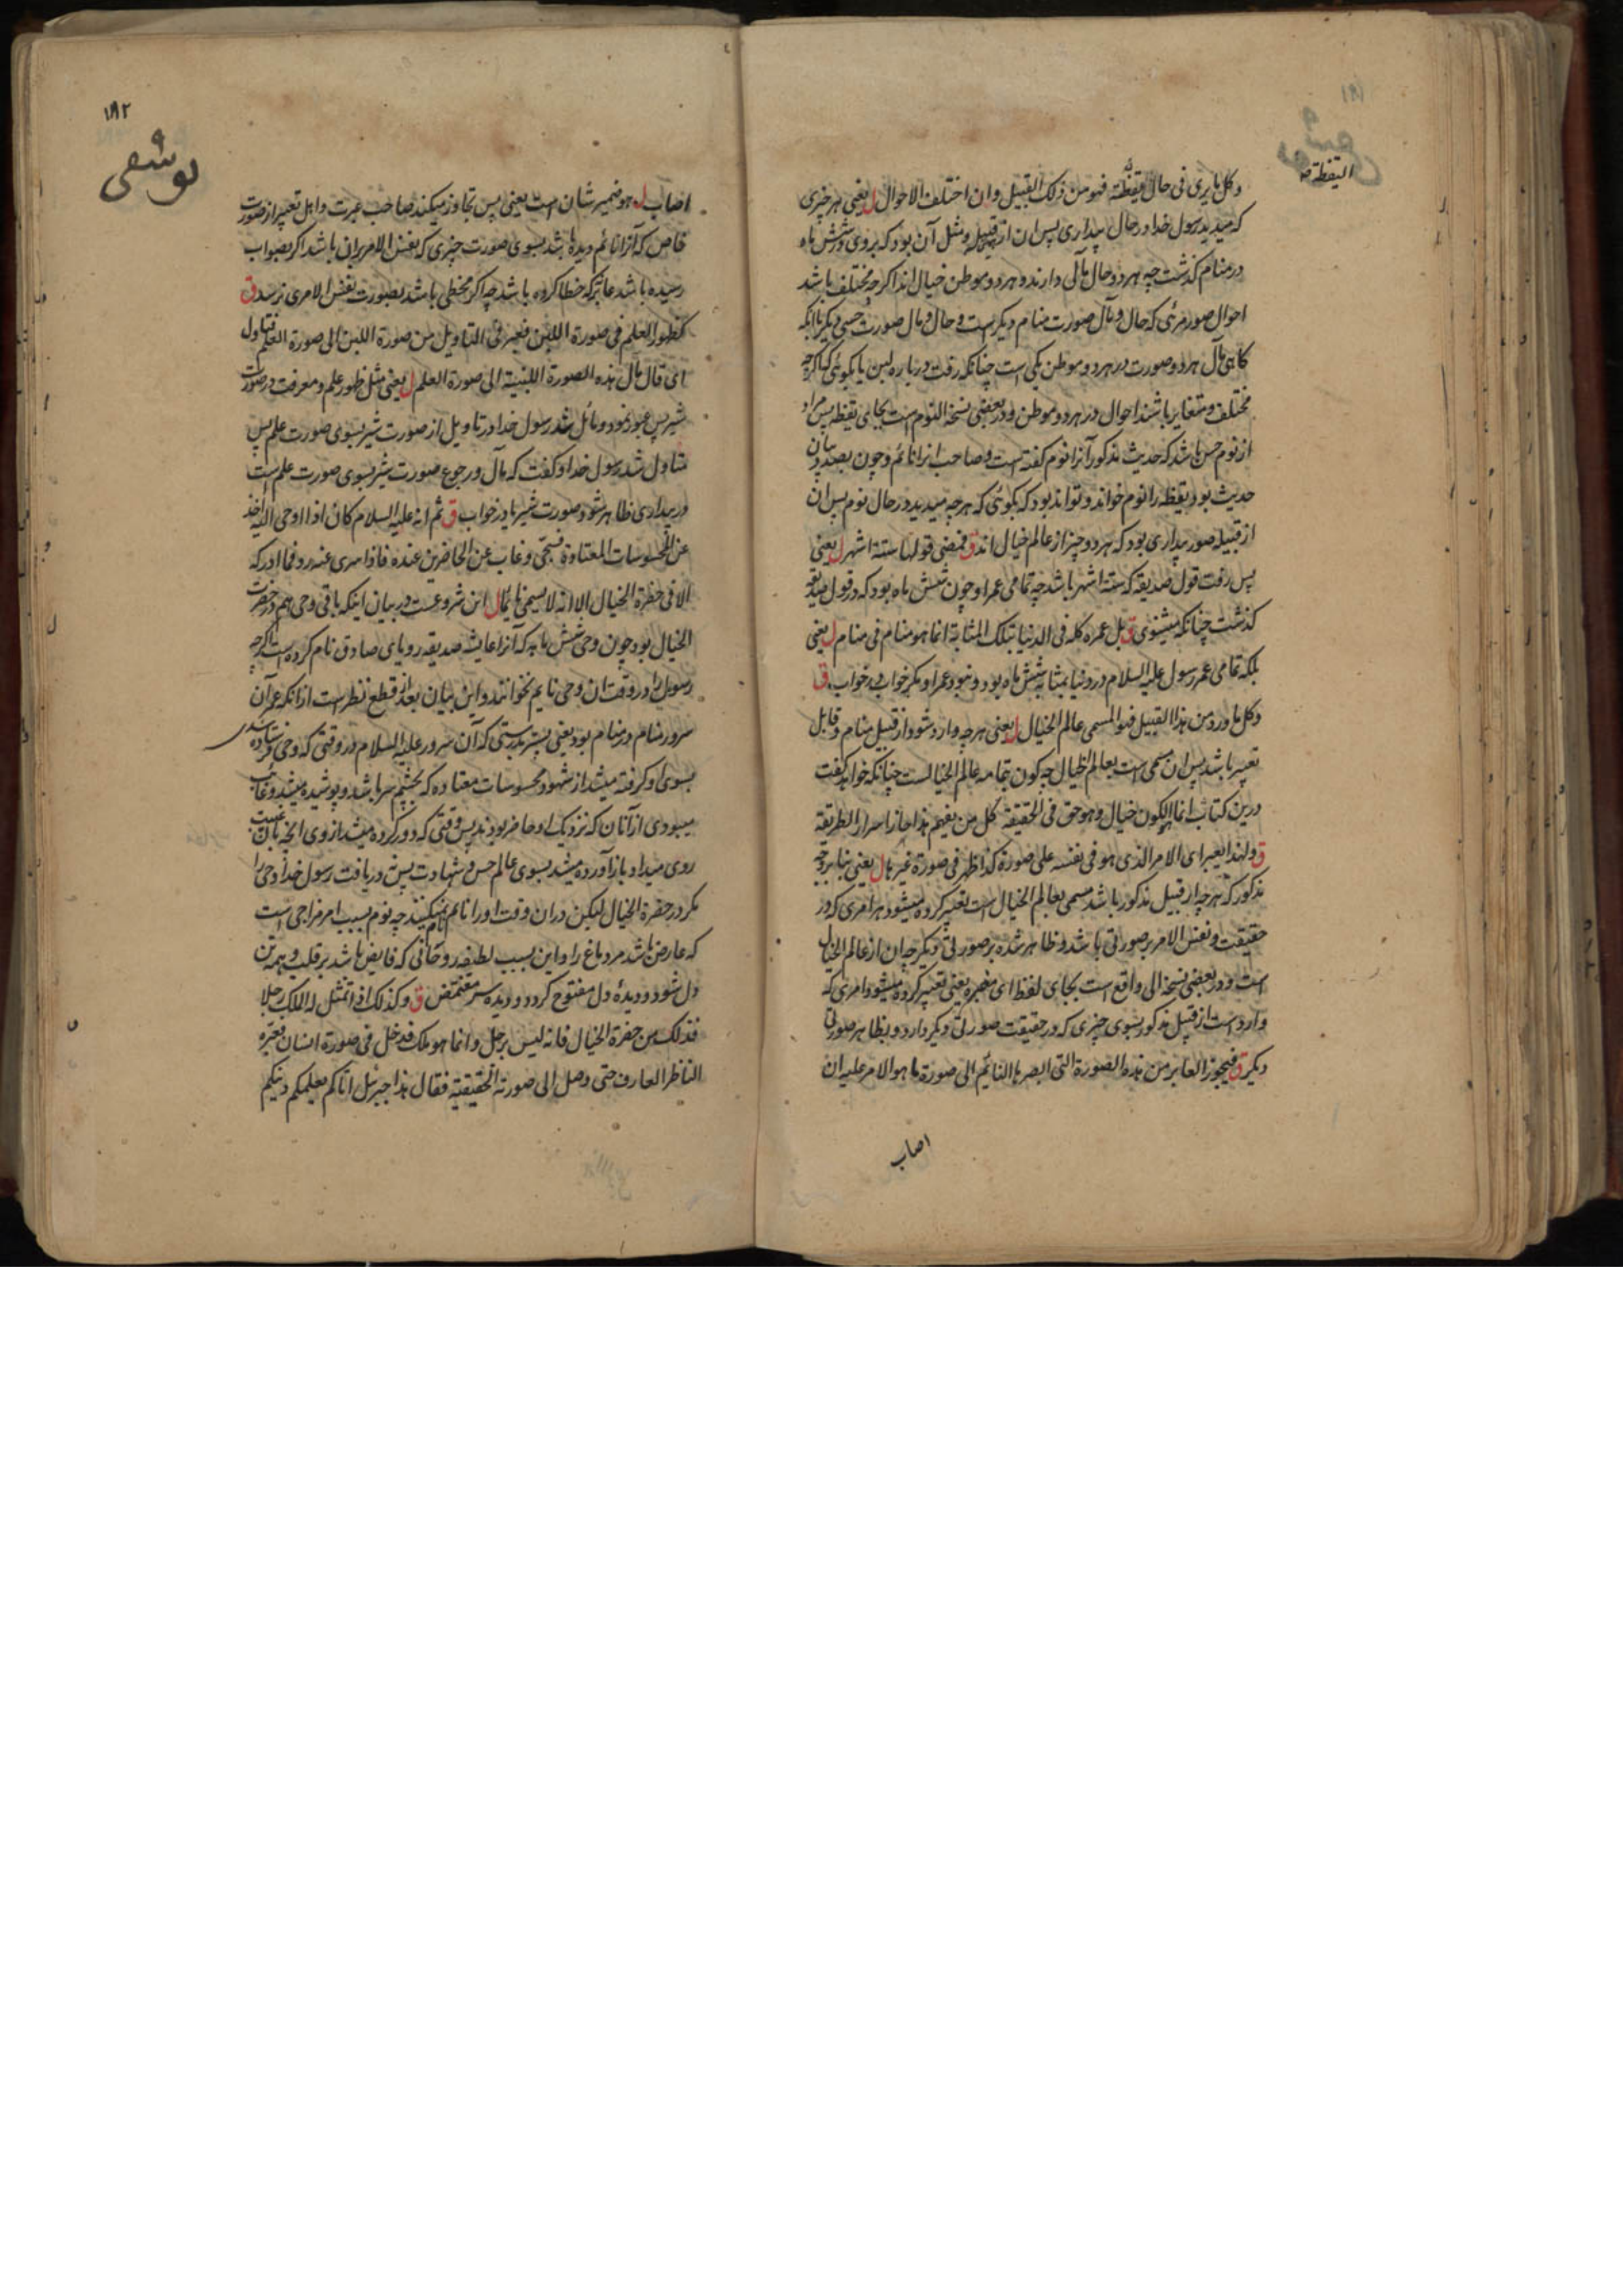 ۱۸۱
الیقظة صح
وکل ما یری فی حال یقظته فهو من ذلک القبیل وان اختلف الاحوال ل یعنی هر چیزی
که میدید رسول خدا در حال بیداری پس ان از قبیله و مثل آن بود که بروی شش ماه
در منام گذشت چه هر دو حال مآلی دارند و هر دو موطن خیال اند اگرچه مختلف باشد
احوال صور مرئی که حال و مآل صورت منام دیگر است و حال و مآل صورت حسی دیگر باانکه
گاهی مآل هر دو صورت در هر دو موطن یکی است چنانکه رفت در باره لبن یا بگوئی که اگرچه
مختلف و متغایر باشند احوال در هر دو موطن و در بعضی نسخه النوم است بجای یقظه پس مراد
از نوم حس باشد که حدیث مذکور آنرا نوم گفته است و صاحب انرا نائم و چون بصدد بیان
حدیث بود یقظه را نوم خواند و تواند بود که بگوئی که هر چه میدید در حال نوم پس ان
از قبیله صور بیداری بود که هر دو چیز از عالم خیال اند ق فمضی قولها ستة اشهر ل یعنی
پس رفت قول صدیقه که ستة اشهر باشد چه تمامی عمر او چون شش ماه بود که در قول صدیقه
گذشت چنانکه میشنوی ق بل عمره کله فی الدنیا بتلک المثابة انما هو منام فی منام ل یعنی
بلکه تمامی عمر رسول علیه السلام در دنیا بمثابه شش ماه بود و نبود عمر او مگر خواب در خواب ق
وکل ما ورد من هذا القبیل فهو المسمی عالم الخیال ل یعنی هر چه وارد شود از قبیل منام و قابل
تعبیر باشد پس ان مسمی است بعالم الخیال چه کون بتمامه عالم الخیالست چنانکه خواهد گفت
درین کتاب انما الکون خیال وهو حق فی الحقیقة کل من یفهم هذا حاز اسرار الطریقة
ق ولهذا یعبر ای الامر الذی هو فی نفسه علی صورة کذا ظهر فی صورة غیرها ل یعنی بنابر وجه
مذکور که هر چه از قبیل مذکور باشد مسمی بعالم الخیال است تعبیر کرده میشود هر امری که در
حقیقت و نفس الامر بر صورتی باشد و ظاهر شده بر صورتی دیگر چه ان از عالم الخیال
است و در بعضی نسخه الی واقع است بجای لفظ ای مغیره یعنی تعبیر کرده میشود امری که
وارد است از قبیل مذکور بسوی چیزی که در حقیقت صورتی دیگر دارد و بظاهر صورتی
دیگر ق فیجوز العابر من هذه الصورة التی ابصرها النائم الی صورة ما هو الامر علیه ان
اصاب
۱۸۲
یوسفی
اصاب ل هو ضمیر شان است یعنی پس تجاوز میکند صاحب عبرت و اهل تعبیر از صورت
خاص که آنرا نائم دیده باشد بسوی صورت چیزی که نفس الامر بران باشد اگر بصواب
رسیده باشد عابر که خطا کرده باشد چه اگر مخطی باشد بصورت نفس الامری نرسد ق
کظهور العلم فی صورة اللبن فعبر فی التاویل من صورة اللبن الی صورة العلم فتاول
ای قال مآل هذه الصورة اللبنیة الی صورة العلم ل یعنی مثل ظهور علم و معرفت در صورت
شیر پس عبور نمود و مائل شد رسول خدا در تاویل از صورت شیر بسوی صورت علم پس
متاول شد رسول خدا و گفت که مآل و رجوع صورت شیر بسوی صورت علم است
در بیداری ظاهر شود صورت شیر یا در خواب ق ثم انه علیه السلام کان اذا اوحی الیه اخذ
عن المحسوسات المعتادة فسجی وغاب عن الحاضرین عنده فاذا سری عنه رد فما ادرکه
الا فی حضرة الخیال الا انه لا یسمی نائما ل این شروعست در بیان اینکه باقی وحی هم در حضرت
الخیال بود چون وحی شش ماهه که آنرا عایشه صدیقه رویای صادق نام کرده است اگرچه
رسول را در وقت ان وحی نایم نخوانند و این بیان بعد از قطع نظر است از انکه عمر آن
سرور منام در منام بود یعنی پستر بدرستی که آن سرور علیه السلام در وقتی که وحی فرستاده شدی
بسوی او گرفته میشد از شهود محسوسات معتاده که بچشم سر باشد و پوشیده میشد و غائب
میبودی از آنان که نزدیک او حاضر بودند پس وقتی که دور کرده میشد از وی انچه بان غیبت
روی میداد باز آورده میشد بسوی عالم حس و شهادت پس دریافت رسول خدا وحی را
مگر در حضرة الخیال لیکن دران وقت او را نائم نام نمیکنند چه نوم بسبب امر مزاجی است
که عارض باشد مر دماغ را و این بسبب لطیفه روحانی که فایض باشد بر قلب و همه تن
دل شود و دیده دل مفتوح گردد و دیده سر مغتمض ق وکذلک اذا تمثل له الملک رجلا
فذلک من حضرة الخیال فانه لیس برجل وانما هو ملک فدخل فی صورة انسان فعبره
الناظر العارف حتی وصل الی صورته الحقیقیة فقال هذا جبرئیل اتاکم یعلمکم دینکم